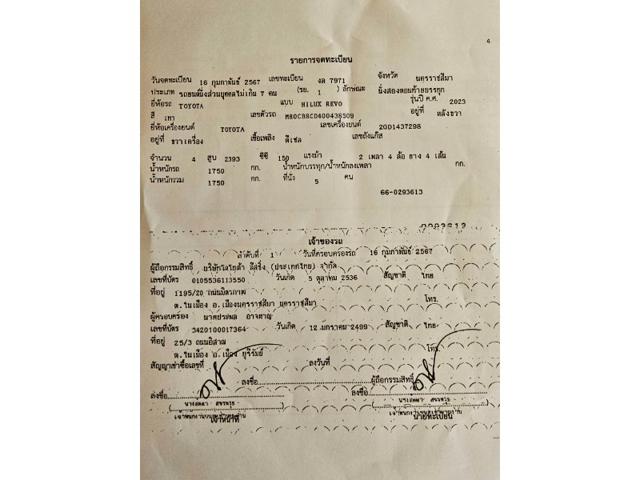 4
รายการจดทะเบียน
วันจดทะเบียน 16 กุมภาพันธ์ 2567 เลขทะเบียน 7971 จังหวัด นครราชสีมา
ประเภท รถยนต์นั่งส่วนบุคคลไม่เกิน 7 คน (รย. 1) ลักษณะ นั่งสองตอนท้ายบรรทุก
ยี่ห้อรถ TOYOTA แบบ HILUX REVO รุ่นปี ค.ศ. 2023
สี เทา เลขตัวรถ อยู่ที่
ยี่ห้อเครื่องยนต์ TOYOTA เลขเครื่องยนต์ 2GD1437298
อยู่ที่ ขวาเครื่อง เชื้อเพลิง ดีเซล เลขถังแก๊ส
จำนวน 4 สูบ 2393 ซีซี 150 แรงม้า 2 เพลา 4 ล้อ ยาง 4 เส้น
น้ำหนักรถ 1750 กก. น้ำหนักบรรทุก/น้ำหนักลงเพลา กก.
น้ำหนักรวม 1750 กก. ที่นั่ง 5 คน
66-0293613
เจ้าของรถ
ลำดับที่ 1 วันที่ครอบครองรถ 16 กุมภาพันธ์ 2567
ผู้ถือกรรมสิทธิ์ บริษัทโตโยต้า ลีสซิ่ง (ประเทศไทย) จำกัด
เลขที่บัตร 0105536113550 วันเกิด 5 ตุลาคม 2536 สัญชาติ ไทย
ที่อยู่ 1195/20 ถนนมิตรภาพ
ต.ในเมือง อ.เมืองนครราชสีมา นครราชสีมา โทร.
ผู้ครอบครอง
เลขที่บัตร 3420100017364 วันเกิด 12 มกราคม 2499 สัญชาติ ไทย
ที่อยู่ 25/3 ถนนอิสาณ
ต.ในเมือง อ.เมือง บุรีรัมย์ โทร.
สัญญาเช่าซื้อเลขที่ ลงวันที่
ลงชื่อ ผู้ถือกรรมสิทธิ์
ลงชื่อ ลงชื่อ
เจ้าหน้าที่ นายทะเบียน